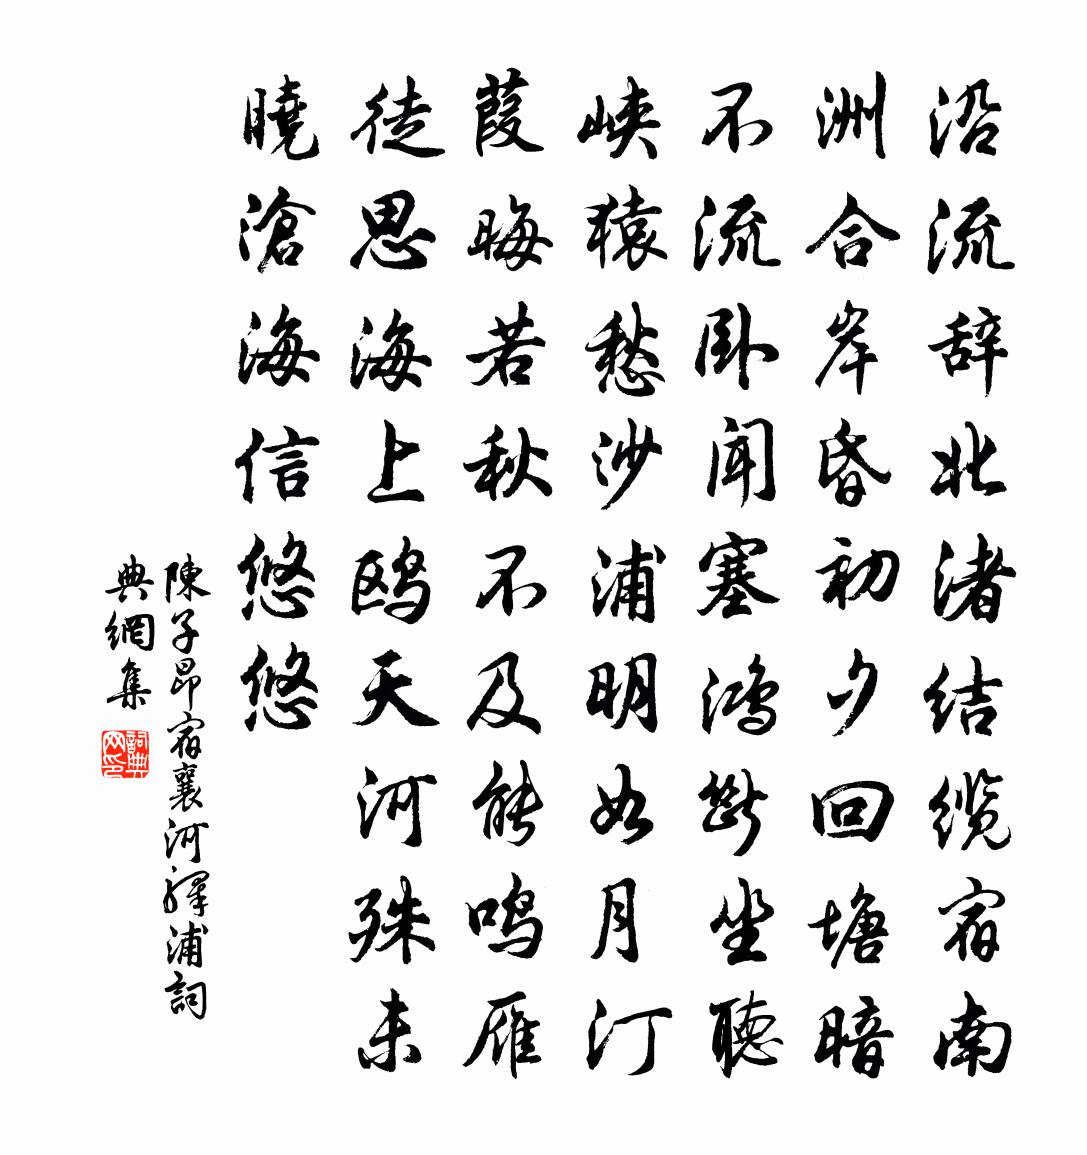 沿流辞北渚结缆宿南
洲合岸昏初夕回塘暗
不流卧闻塞鸿断坐聽
峡猿愁沙浦明如月汀
葭晦若秋不及能鸣雁
徒思海上鸥天河殊未
曉滄海信悠悠
陳子昂宿襄河驛浦詞
典網集
詞典网印